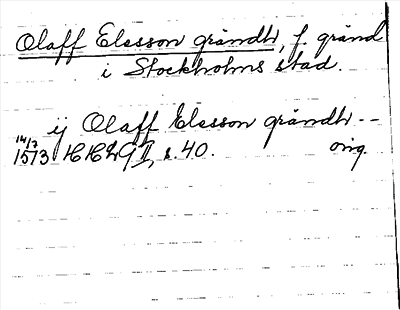 Olaff Elesson gråndh, f. gränd
i Stockholms stad.
ij Olaff Elesson gråndh --
14/7
1573 HH2GII, s. 40. orig.